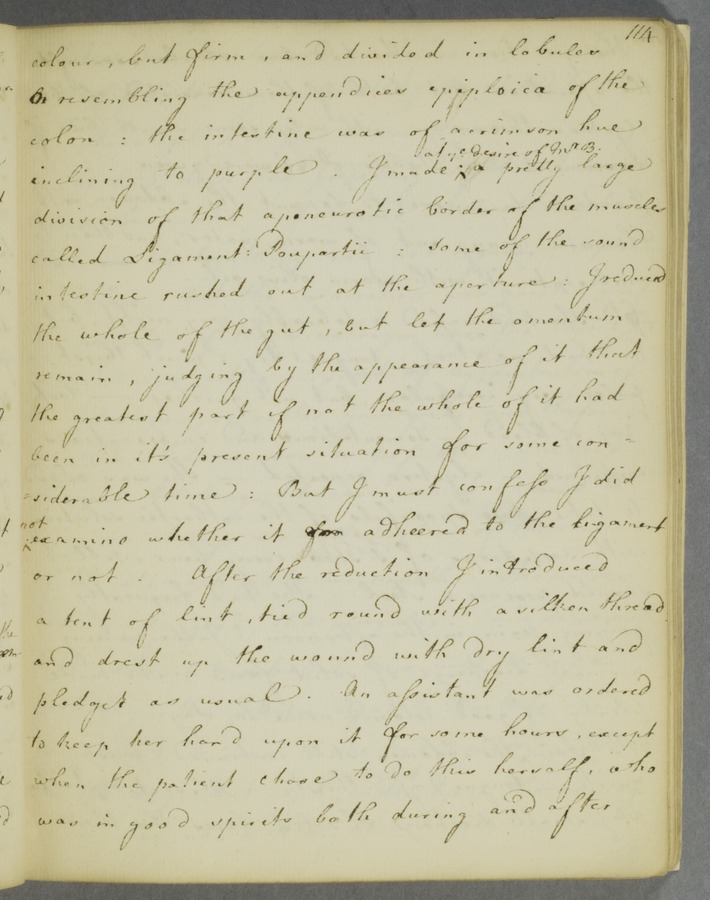 114
colour, but firm, and divided in lobules
resembling the appendices epiploica of the
colon : the intestine was of a crimson hue
at ye desire of Mr B.
inclining to purple . I made a pretty large
division of that aponeurotic border of the muscles
called Ligament: Poupartii : some of the sound
intestine rushed out at the aperture : I reduced
the whole of the gut, but let the omentum
remain, judging by the appearance of it that
the greatest part if not the whole of it had
been in it's present situation for some con=
=siderable time : But I must confess I did
not
examine whether it adheered to the ligament
or not . After the reduction I introduced
a tent of lint, tied round with a silken thread
and drest up the wound with dry lint and
pledget as usual . An assistant was ordered
to keep her hand upon it for some hours, except
when the patient chose to do this herself, who
was in good spirits both during and after